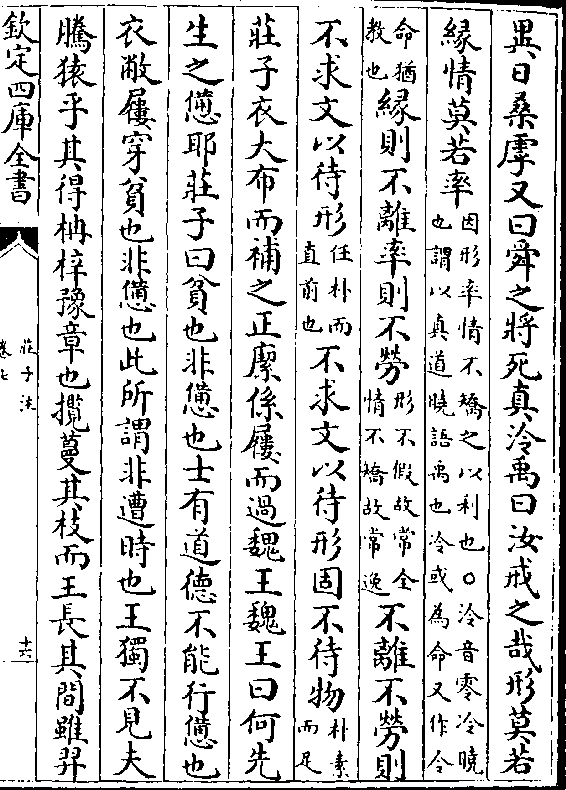 異日桑雽又曰舜之將死真泠禹曰汝戒之哉形莫若
緣情莫若率因形率情不矯之以利也○泠音零泠曉也謂以真道曉語禹也泠或為命又作令
命猶教也緣則不離率則不勞形不假故常全情不矯故常逸不離不勞則
不求文以待形任朴而直前也不求文以待形固不待物朴素而足
莊子衣大布而補之正緳係屨而過魏王魏王曰何先
生之憊耶莊子曰貧也非憊也士有道德不能行憊也
衣敝屨穿貧也非憊也此所謂非遭時也王獨不見夫
騰猿乎其得柟梓豫章也攬蔓其枝而王長其間雖羿
欽定四庫全書
莊子注
卷七
十六